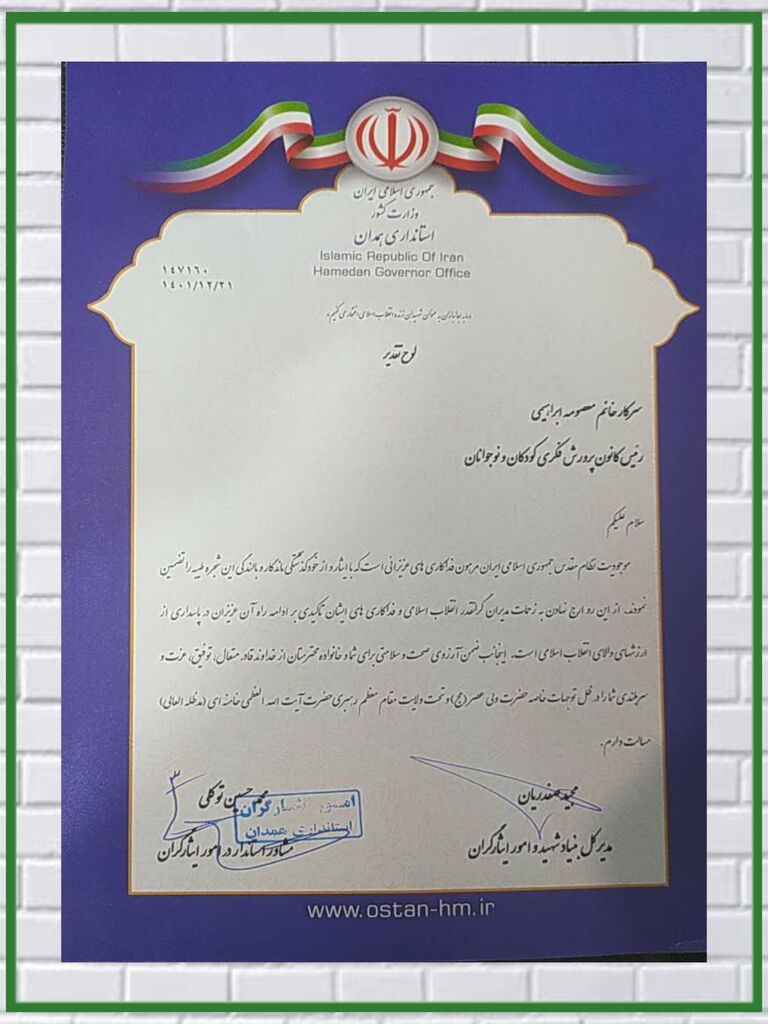 جمهوری اسلامی ایران
وزارت کشور
استانداری همدان
Islamic Republic Of Iran
Hamedan Governor Office
۱۴۷۱۶۰
۱۴۰۱/۱۲/۲۱
ما به جانبازان به عنوان شهیدان زنده انقلاب اسلامی افتخار می کنیم
لوح تقدیر
سرکار خانم معصومه ابراهیمی
رئیس کانون پرورش فکری کودکان و نوجوانان
سلام علیکم
موجودیت نظام مقدس جمهوری اسلامی ایران مرهون فداکاری های عزیزانی است که با ایثار و از خودگذشتگی ماندگار و بالندگی این شجره طیبه را تضمین
نمودند. از این رو ارج نهادن به زحمات مدیران گرانقدر انقلاب اسلامی و فداکاری های ایشان تاکیدی بر ادامه راه آن عزیزان در پاسداری از
ارزشهای والای انقلاب اسلامی است. اینجانب ضمن آرزوی صحت و سلامتی برای شما و خانواده محترمتان از خداوند قادر متعال، توفیق، عزت و
سربلندی شما را در ظل توجهات خاصه حضرت ولی عصر (عج) و تحت ولایت مقام معظم رهبری حضرت آیت الله العظمی خامنه ای (مدظله العالی)
مسالت دارم.
مجید صفدریان
مدیر کل بنیاد شهید و امور ایثارگران
محمد حسین توکلی
مشاور استاندار در امور ایثارگران
امور ایثارگران
استانداری همدان
www.ostan-hm.ir